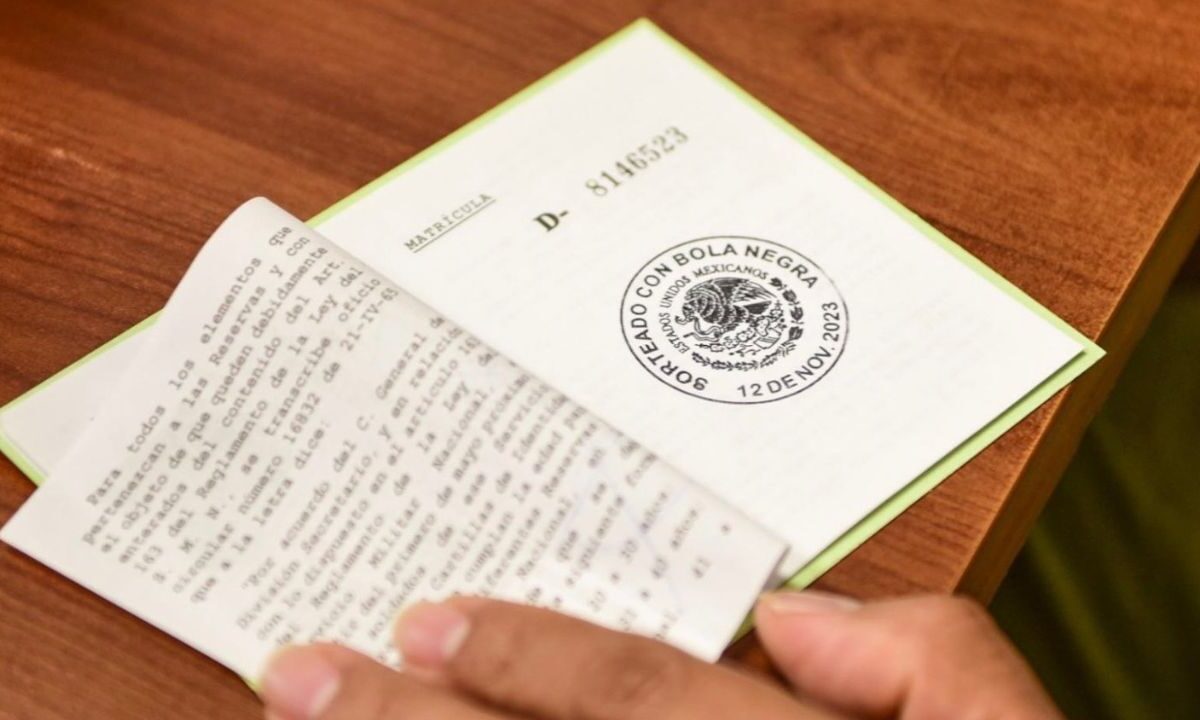 MATRÍCULA
D- 8146523
SORTEADO CON BOLA NEGRA
ESTADOS UNIDOS MEXICANOS
12 DE NOV. 2023
Para todos los elementos que
pertenezcan a las Reservas y con
el objeto de que queden debidamente
enterados del contenido del Art.
163 del Reglamento de la Ley del
S. M. N. se transcribe oficio
circular número 16832 de 21-IV-65
que a la letra dice:
"Por acuerdo del C. General de
División Secretario, y en relación
con lo dispuesto en el artículo
del Reglamento de la Ley de
Militar Nacional
del primero de mayo próximo
soldados de ese Servicio
Cartillas de Identidad
cumplan la edad
Reservas
Nacional
que se en
siguiente
a 30 años
a años
41 a